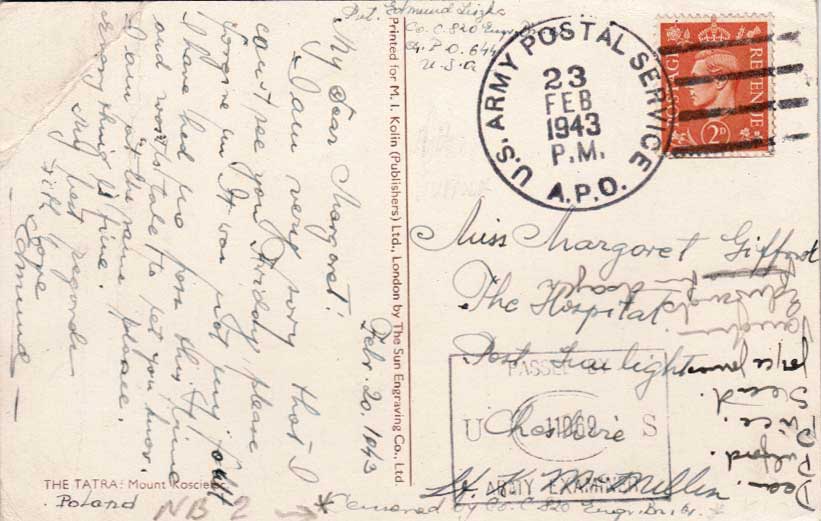 Pvt. Edmund
Co. C. 820 Engr.
A.P.O. 644
U.S.A
U.S. ARMY POSTAL SERVICE
23
FEB
1943
P.M.
A.P.O.
POSTAGE REVENUE
2D
Febr. 20. 1943
My Dear Margaret!
I am very sory that I
can't see you Friday, please
forgive me. It was not my fault
I have had no pass this time
and wasn't able to let you know.
I am at the same place.
Every thing is fine.
My best regards
With love
Edmund
THE TATRA: Mount
Poland
Printed for M. I. Kolin (Publishers) Ltd., London by The Sun Engraving Co., Ltd
Miss Margaret Gifford
The Hospital
Port Sunlight
Cheshire
PASSED BY
U S
ARMY EXAMINER
Lt.
NB 2
Censored by Co. C 820 Engr.
Dean.
Pulford.
Price.
Stead.